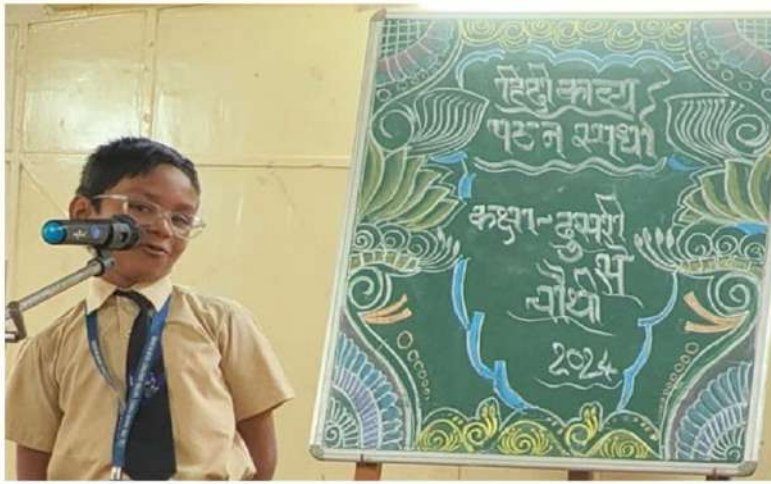 हिंदी काव्य
पठन स्पर्धा
कक्षा - दुसरी
से
चौथी
2024